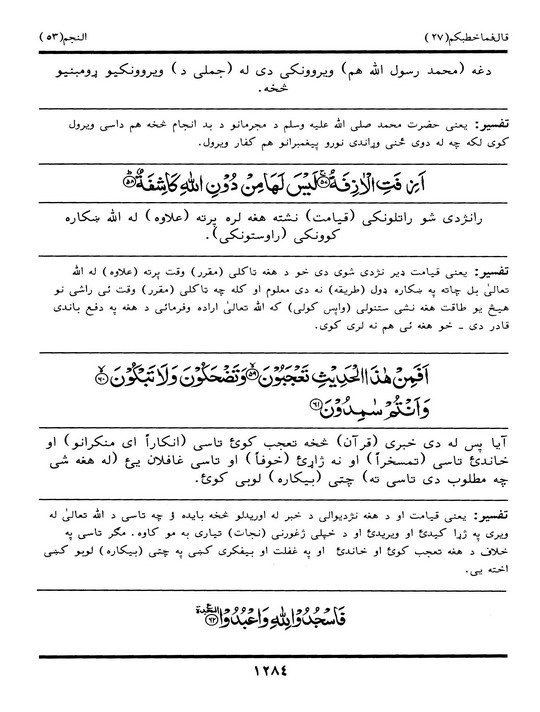 قال‌فماخطبکم(۲۷) النجم(۵۳)
دغه (محمد رسول الله هم) ویروونکی دی له (جملی د) ویروونکیو ړومبنیو
څخه.
تفسیر: یعنی حضرت محمد صلی الله علیه وسلم د مجرمانو د بد انجام څخه هم داسی ویرول
کوی لکه چه له دوی ځنی وړاندی نورو پیغمبرانو هم کفار ویرول.
اَزِفَتِ الْاٰزِفَةُ ﴿۵۷﴾ لَيْسَ لَهَا مِنْ دُوْنِ اللّٰهِ كَاشِفَةٌ ﴿۵۸﴾
رانژدی شو راتلونکی (قیامت) نشته هغه لره پرته (علاوه) له الله ښکاره
کوونکی (راوستونکی).
تفسیر: یعنی قیامت ډیر نژدی شوی دی خو د هغه تاکلی (مقرر) وقت پرته (علاوه) له الله
تعالیٰ بل چاته په ښکاره ډول (طریقه) نه دی معلوم او کله چه تاکلی (مقرر) وقت ئی راشی نو
هیڅ یو طاقت هغه نشی ستنولی (واپس کولی) که الله تعالیٰ اراده وفرمائی د هغه په دفع باندی
قادر دی ـ خو هغه ئی هم نه لری کوی.
اَفَمِنْ هٰذَا الْحَدِيْثِ تَعْجَبُوْنَ ﴿۵۹﴾ وَتَضْحَكُوْنَ وَلَا تَبْكُوْنَ ﴿۶۰﴾
وَاَنْتُمْ سٰمِدُوْنَ ﴿۶۱﴾
آیا پس له دی خبری (قرآن) څخه تعجب کوئ تاسی (انکاراً ای منکرانو) او
خاندئ تاسی (تمسخراً) او نه ژاړئ (خوفاً) او تاسی غافلان یئ (له هغه شی
چه مطلوب دی تاسی ته) چتی (بیکاره) لوبی کوئ.
تفسیر: یعنی قیامت او د هغه نژدیوالی د خبر له اوریدلو څخه بایده ؤ چه تاسی د الله تعالیٰ له
ویری په ژړا کیدئ او ویریدئ او د خپلی ژغورنی (نجات) تیاری به مو کاوه. مگر تاسی په
خلاف د هغه تعجب کوئ او خاندئ او په غفلت او بیفکری کښی په چتی (بیکاره) لوبو کښی
اخته یی.
فَاسْجُدُوْا لِلّٰهِ وَاعْبُدُوْا ﴿۶۲﴾ السجدة
۱۲۸٤